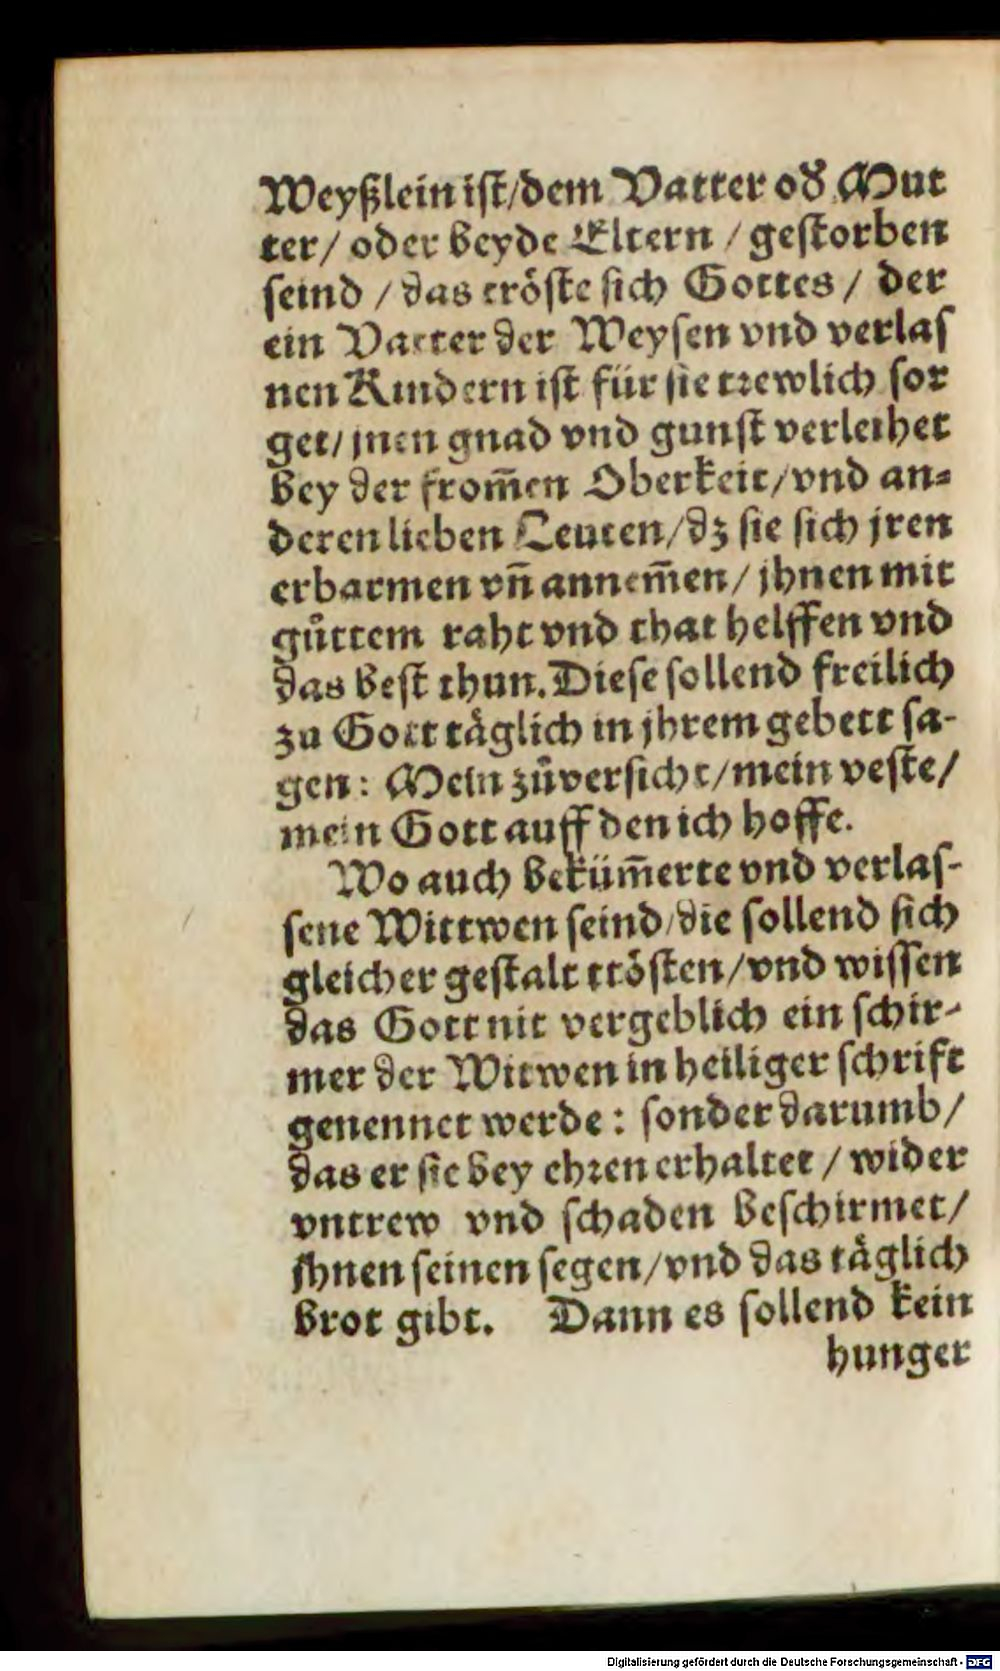 Weyßlein ist/dem Vatter od Mut
ter/ oder beyde Eltern / gestorben
seind / das tröste sich Gottes / der
ein Vatter der Weysen vnd verlas
nen Kindern ist für sie trewlich sor
get/ jnen gnad vnd gunst verleihet
bey der from̃en Oberkeit/vnd an⸗
deren lieben Leuten/dz sie sich jren
erbarmen vñ annem̃en/ jhnen mit
gůttem raht vnd that helffen vnd
das best thun. Diese sollend freilich
zu Gott täglich in jhrem gebett sa-
gen: Mein zůversicht/mein veste/
mein Gott auff den ich hoffe.
Wo auch beküm̃erte vnd verlas-
sene Wittwen seind/die sollend sich
gleicher gestalt trösten/vnd wissen
das Gott nit vergeblich ein schir-
mer der Witwen in heiliger schrift
genennet werde: sonder darumb/
das er sie bey ehren erhaltet / wider
vntrew vnd schaden beschirmet/
jhnen seinen segen/vnd das täglich
brot gibt. Dann es sollend kein
hunger
Digitalisierung gefördert durch die Deutsche Forschungsgemeinschaft - DFG